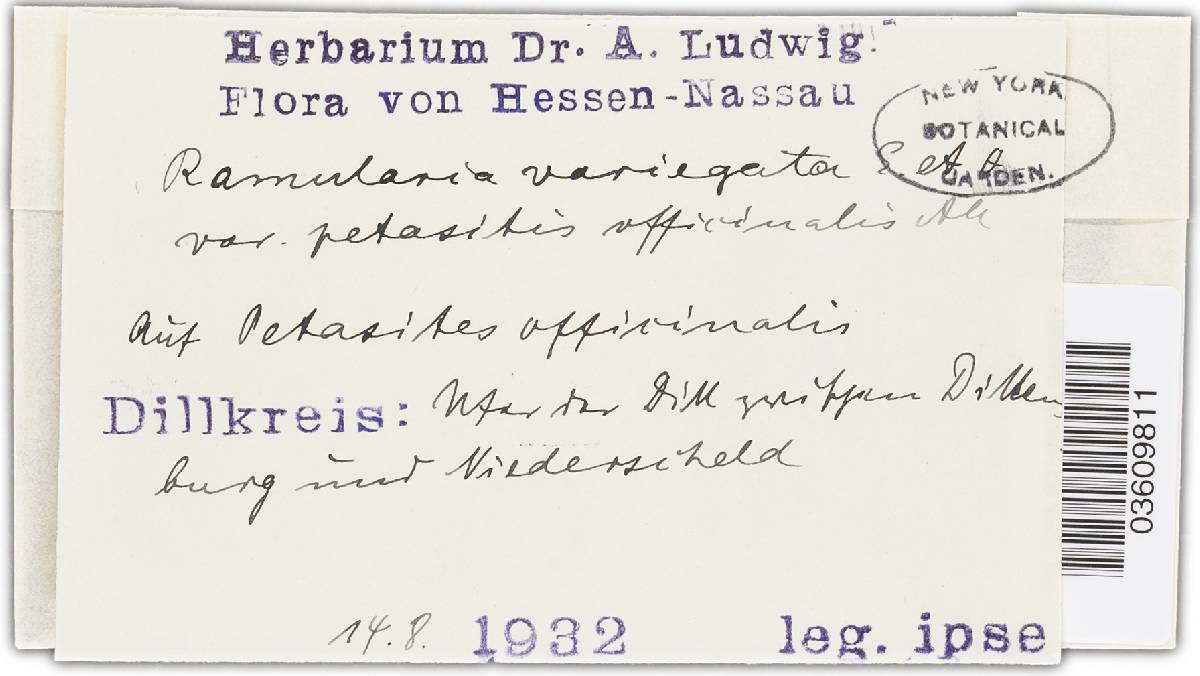 Herbarium Dr. A. Ludwig
Flora von Hessen-Nassau
NEW YORK
BOTANICAL
GARDEN.
Ramularia variegata E. et
var. petasitis officinalis
Auf Petasites officinalis
Dillkreis: Ufer der Dill zwischen Dillen
burg und Niederscheld
14.8. 1932 leg. ipse
03609811